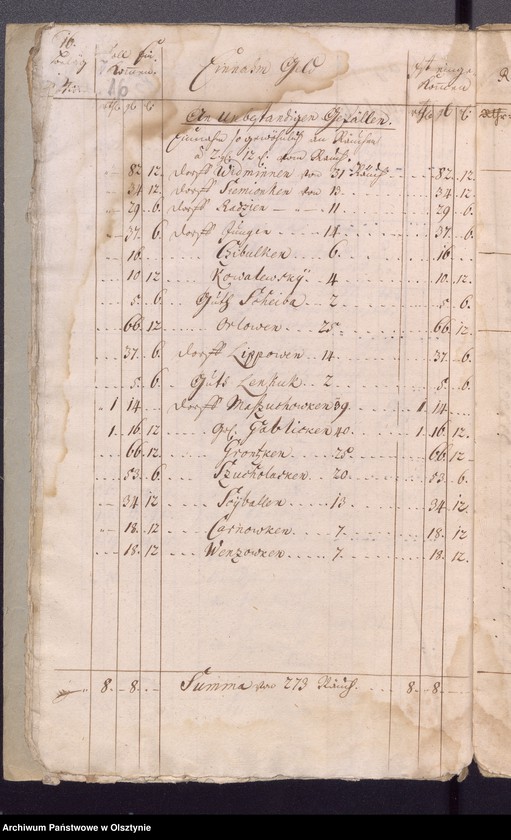 16.
Soll ein
Kommen
Einnahm Geld
Ist einge
Kommen
16
An Unbestandigen Gefällen.
Einnahm so gewöhnlich an Räucher
à 2 12 vom Rauch.
82. 12 Dorff Widminnen von 31 Räuch 82. 12.
34 12 Dorff Siemionken von 13 34. 12.
29 6. Dorff Radzien 11 29 6.
37. 6 Dorff Jungen 14 37. 6.
16. Czibulken 6. 16
10 12 Kowalewsky 4 10. 12.
5. 6 Guth Scheiba 2 5 6.
66. 12 Orlowen 25. 66. 12
37. 6 Dorff Lippowen 14 37. 6.
5. 6 Guts Lenzuk 2 5. 6.
1 14 Dorff Maszuchowken 39 1. 14
1. 16 12 Gablicken 40 1. 16 12.
66 12 Grontzken 25 66 12
53. 6 Szucholasken 20 53 6.
34 12 Soyballen 13 34 12.
18. 12 Czarnowken 7. 18 12
18. 12 Wenzowken 7. 18. 12.
8. 8. Summa von 273 Räuch. 8. 8.
Archiwum Państwowe w Olsztynie